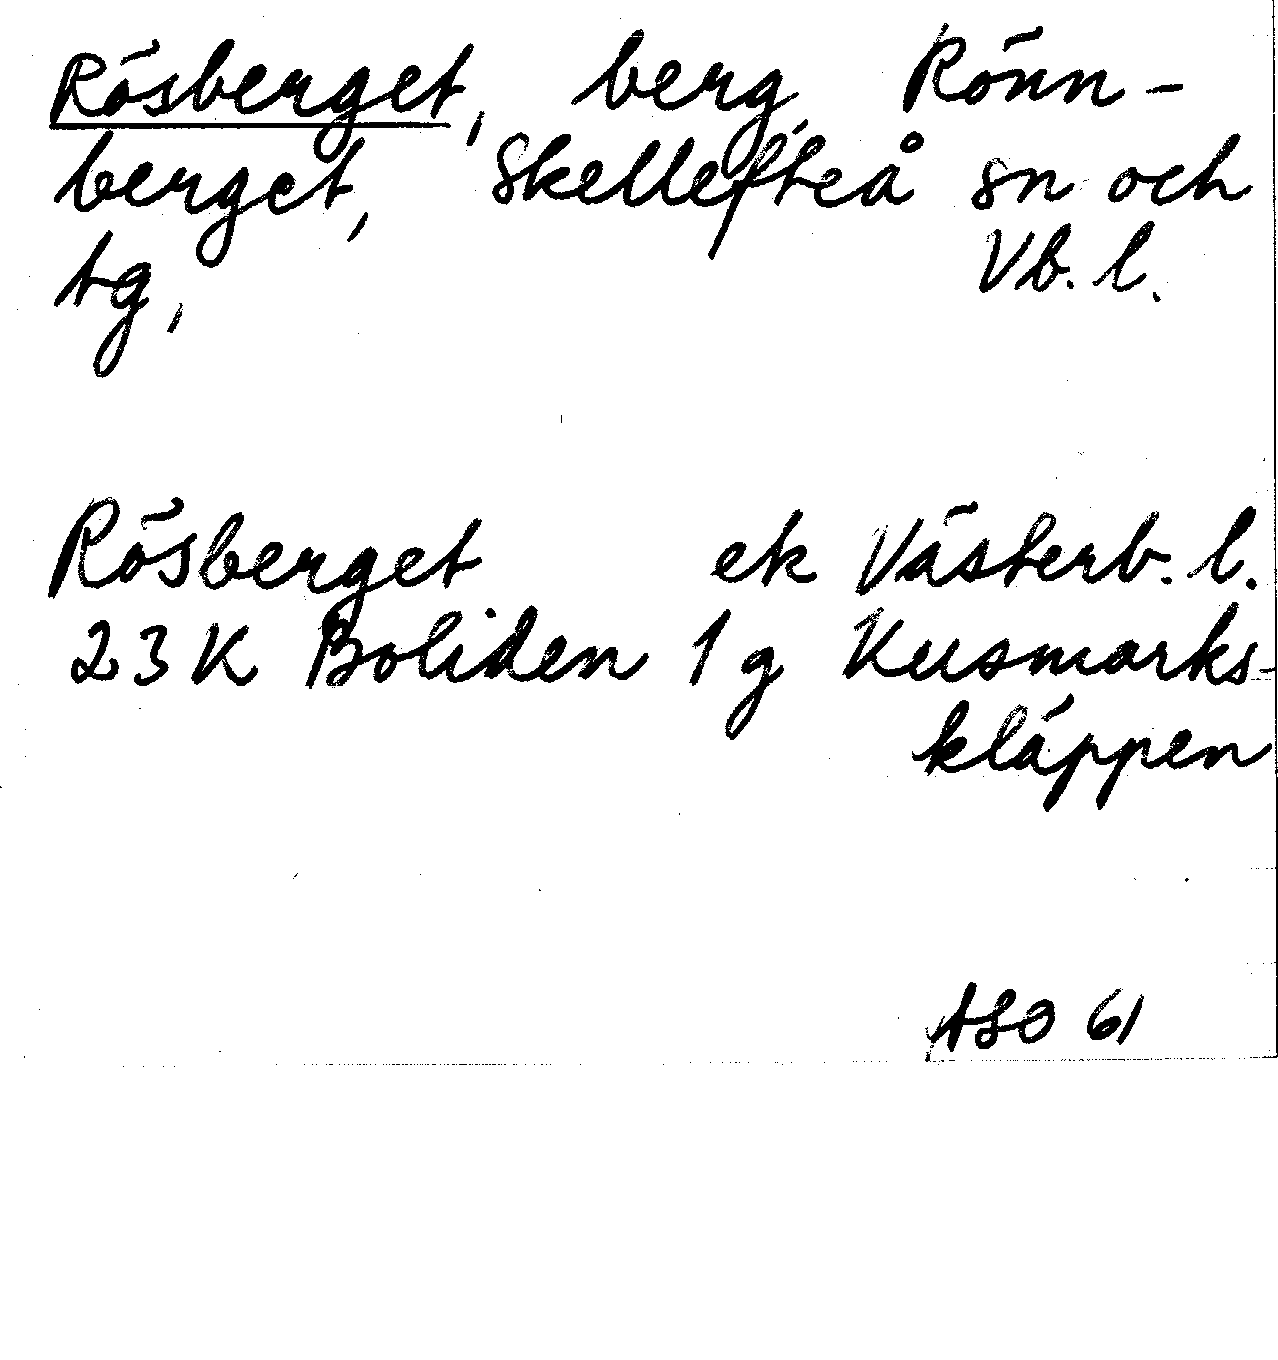 Rösberget, berg Rönn-
berget, Skellefteå sn och
tg, Vb. l.
Rösberget ek Västerb. l.
23 K Boliden 1 g Kusmarks-
kläppen
ASO 61